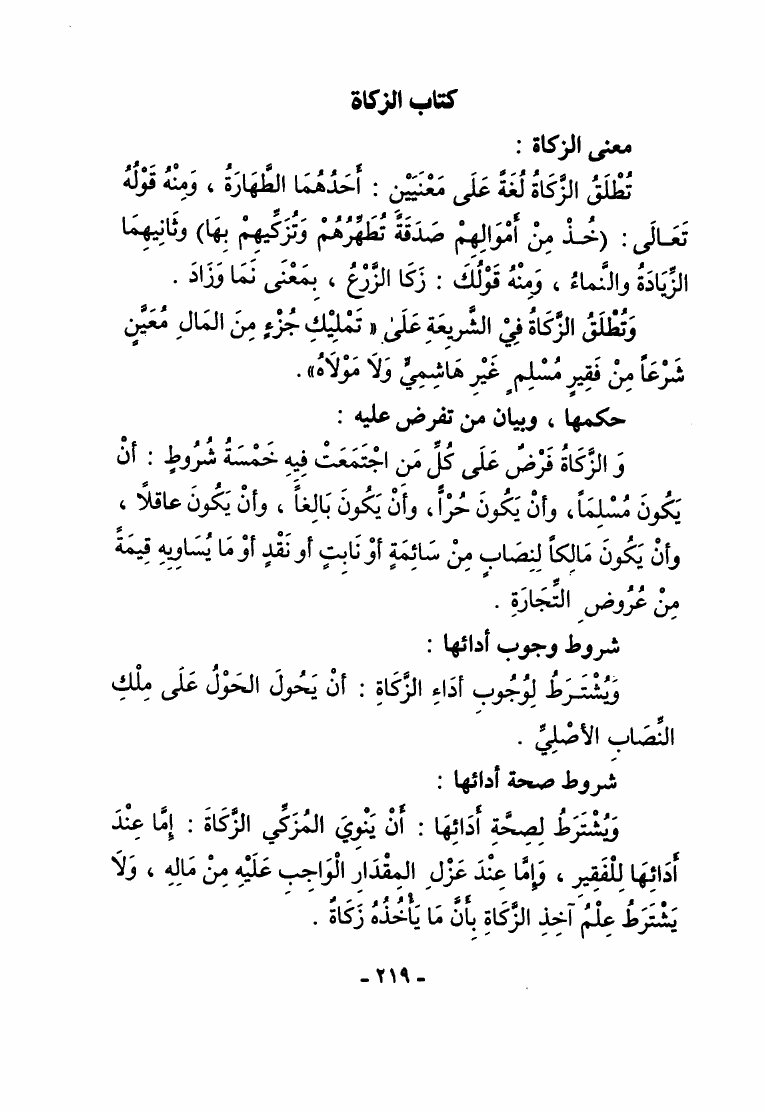 كتاب الزكاة
معنى الزكاة :
تُطْلَقُ الزَّكَاةُ لُغَةً عَلَى مَعْنَيَيْنِ : أَحَدُهُمَا الطَّهَارَةُ ، وَمِنْهُ قَوْلُهُ
تَعَالَى : (خُذْ مِنْ أَمْوَالِهِمْ صَدَقَةً تُطَهِّرُهُمْ وَتُزَكِّيهِمْ بِهَا) وثَانِيهِمَا
الزِّيَادَةُ والنَّماءُ ، وَمِنْهُ قَوْلُكَ : زَكَا الزَّرْعُ ، بِمَعْنَى نَمَا وَزَادَ .
وَتُطْلَقُ الزَّكَاةُ فِيْ الشَّرِيعَةِ عَلَىٰ « تَمْلِيْكِ جُزْءٍ مِنَ المَالِ مُعَيَّنٍ
شَرْعَاً مِنْ فَقِيرٍ مُسْلِمٍ غَيْرِ هَاشِمِيٍّ وَلَا مَوْلَاهُ» .
حكمها ، وبيان من تفرض عليه :
وَ الزَّكَاةُ فَرْضٌ عَلَى كُلِّ مَن اجْتَمَعَتْ فِيهِ خَمْسَةُ شُرُوطٍ : أنْ
يَكُونَ مُسْلِمَاً ، وأنْ يَكُونَ حُرّاً ، وأنْ يَكُونَ بَالِغاً ، وأنْ يَكُونَ عاقلاً ،
وأنْ يَكُونَ مَالِكاً لِنِصَابٍ مِنْ سَائِمَةٍ أوْ نَابِتٍ أو نَقْدٍ أوْ مَا يُسَاوِيهِ قِيمَةً
مِنْ عُرُوضِ التِّجَارَةِ .
شروط وجوب أدائها :
وَيُشْتَرَطُ لِوُجُوبِ أدَاءِ الزَّكَاةِ : أنْ يَحُولَ الحَوْلُ عَلَى مِلْكِ
النِّصَابِ الأصْلِيِّ .
شروط صحة أدائها :
وَيُشْتَرَطُ لِصِحَّةِ أَدَائِهَا : أَنْ يَنْوِيَ المُزَكِّي الزَّكَاةَ : إِمَّا عِنْدَ
أَدَائِهَا لِلْفَقِيرِ ، وَإِمَّا عِنْدَ عَزْلِ المِقْدَارِ الْوَاجِبِ عَلَيْهِ مِنْ مَالِهِ ، وَلَا
يَشْتَرَطُ عِلْمُ آخِذِ الزَّكَاةِ بِأَنَّ مَا يَأْخُذُهُ زَكَاةٌ .
- ٢١٩ -